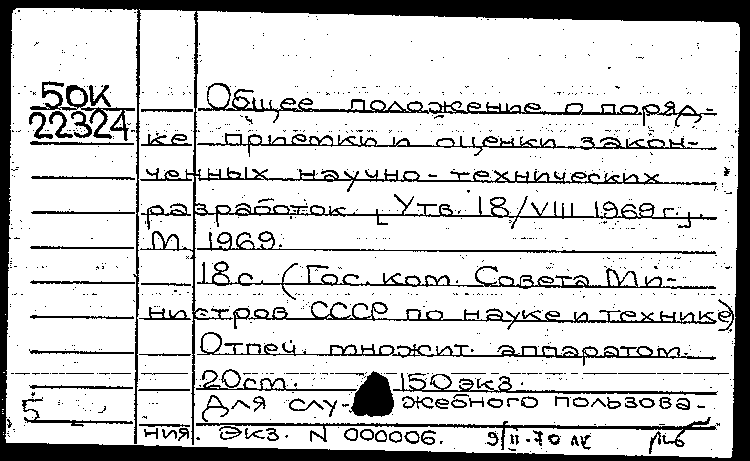 50К
22324
Общее положение о поряд-
ке приемки и оценки закон-
ченных научно-технических
разработок. [Утв. 18/VIII 1969 г.].
М. 1969.
18 с. (Гос. ком. Совета Ми-
нистров СССР по науке и технике)
Отпеч. множит. аппаратом.
20 ст. 150 экз.
Для слу- жебного пользова-
5
ния. Экз. N 000006. 9/II-70